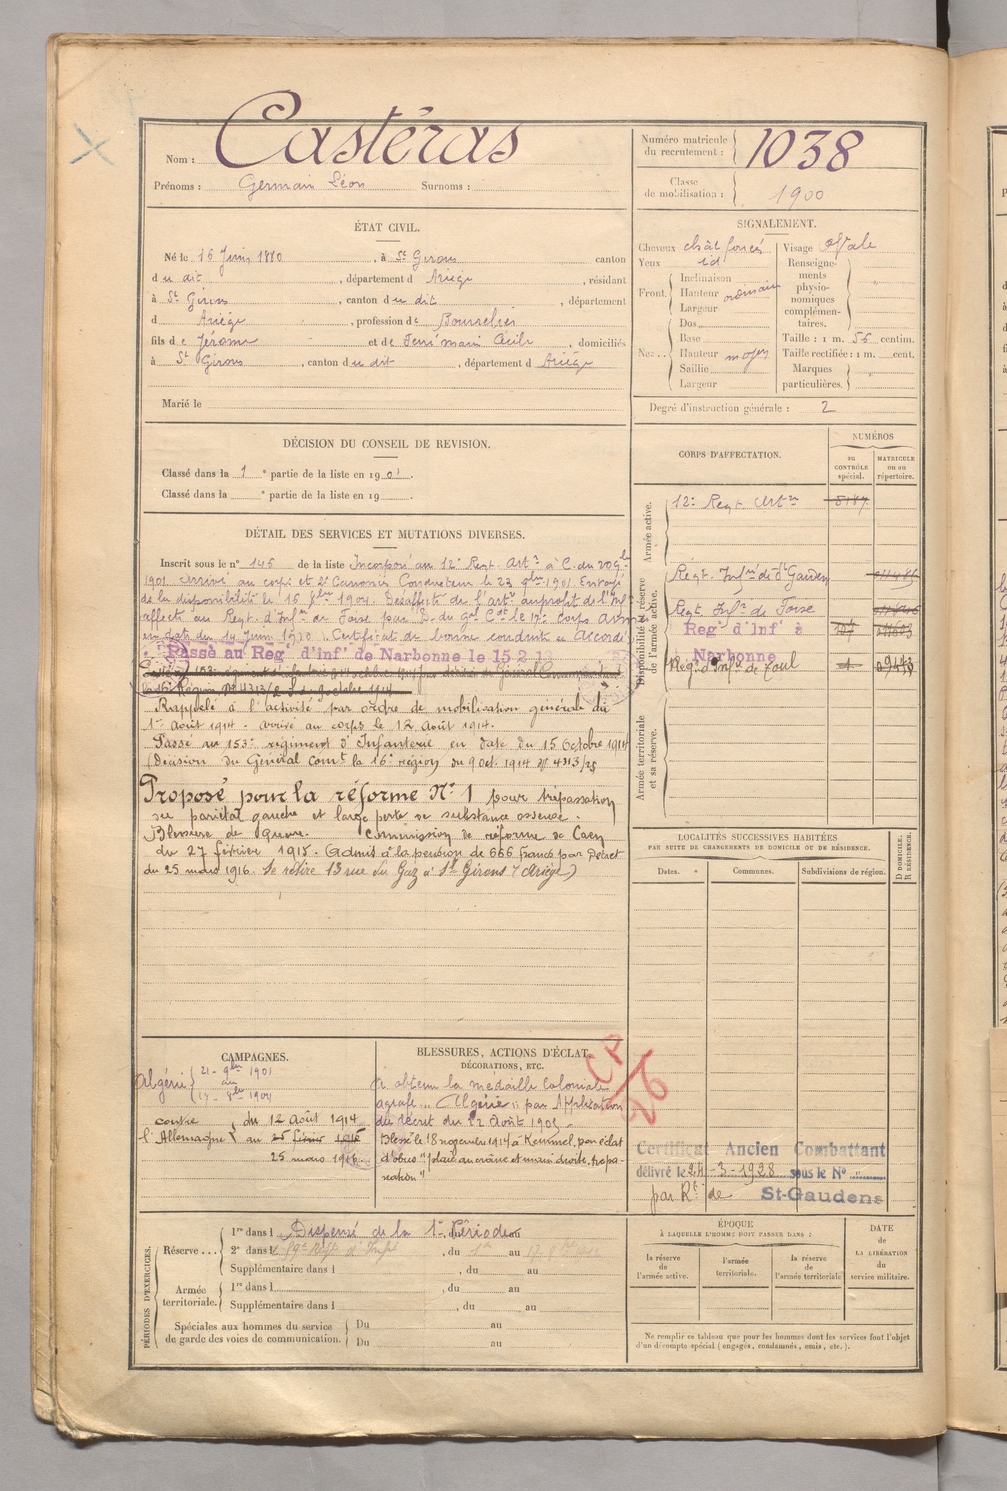 Nom : Castéras
Prénoms : Germain Léon Surnoms :
Numéro matricule du recrutement : 1038
Classe de mobilisation : 1900
ÉTAT CIVIL.
Né le 16 Juin 1880, à St Girons canton
du dit, département d Ariège, résidant
à St Girons, canton du dit, département
d Ariège, profession de Bourrelier
fils de Jérome et de Cécile, domiciliés
à St Girons, canton du dit, département d Ariège
Marié le
SIGNALEMENT.
Cheveux chât foncés Visage ovale
Yeux id
Front. Inclinaison
Hauteur
Largeur
Nez.. Dos
Base
Hauteur moyen
Saillie
Largeur
Renseignements physionomiques complémentaires.
Taille : 1 m. 56 centim.
Taille rectifiée : 1 m. cent.
Marques particulières.
Degré d'instruction générale : 2
DÉCISION DU CONSEIL DE REVISION.
Classé dans la 1e partie de la liste en 1901.
Classé dans la e partie de la liste en 19 .
CORPS D'AFFECTATION.
NUMÉROS
AU CONTRÔLE spécial.
MATRICULE ou au répertoire.
Armée active.
12e Regt Artie
Disponibilité et réserve de l'armée active.
Régt. Infie de St Gaudens
Regt Infie de Foix
Regt d'Inft à Narbonne
Regt d'Infie de Toul
Armée territoriale et sa réserve.
DÉTAIL DES SERVICES ET MUTATIONS DIVERSES.
Inscrit sous le n° 146 de la liste Incorporé au 12e Regt. Artie à C. du 20 9bre
1901 arrivé au corps et 2e Canonier Conducteur le 23 9bre 1901. Envoyé
de la disponibilité le 16 1904. Désaffecté de l'artie au profit de l'Infie
affecté au Regt. d'Infie de Foix par D. du Gal Cdt le 17e Corps
en date du 14 Juin 1910. Certificat de bonne conduite Accordé
Passé au Regt d'inft de Narbonne le 15.2.1
Rappelé à l'activité par ordre de mobilisation générale du
1er Août 1914. arrivé au corps le 12 Août 1914.
Passé au 153e régiment d'Infanterie en date du 15 Octobre 1914
(Décision du Général Comt la 16e région du 9 oct. 1914 N° 4313/25
Proposé pour la réforme N° 1 pour trépanation
au pariétal gauche et large perte de substance osseuse.
Blessure de guerre. Commission de réforme de Caen
du 27 février 1915. Admis à la pension de 666 francs par Décret
du 25 mars 1916. Se retire 13 rue du Gaz à St Girons (Ariège)
LOCALITÉS SUCCESSIVES HABITÉES
PAR SUITE DE CHANGEMENTS DE DOMICILE OU DE RÉSIDENCE.
Dates. Communes. Subdivisions de région.
D DOMICILE. R RÉSIDENCE.
CAMPAGNES.
Algérie 21 - 9bre 1901
au
1904
contre l'Allemagne du 12 Août 1914
au 25 février 1915
25 mars 1916
BLESSURES, ACTIONS D'ÉCLAT,
DÉCORATIONS, ETC.
A obtenu la médaille Coloniale
agrafe "Algérie" par Application
du décret du 22 Août 1905
Blessé le 18 novembre 1914 à Kemmel, par éclat
d'obus "plaie au crâne et main droite, trépa-
nation"
CP
26
Certificat Ancien Combattant
délivré le 24-3-1928 sous le N°
par Rt de St-Gaudens
PÉRIODES D'EXERCICES.
Réserve ... 1re dans l Dispensé de la 1e Période
2e dans l , du au
Supplémentaire dans l , du au
Armée territoriale. 1re dans l , du au
Supplémentaire dans l , du au
Spéciales aux hommes du service de garde des voies de communication. Du au
Du au
ÉPOQUE
À LAQUELLE L'HOMME DOIT PASSER DANS :
la réserve de l'armée active.
l'armée territoriale.
la réserve de l'armée territoriale
DATE DE LA LIBÉRATION du service militaire.
Ne remplir ce tableau que pour les hommes dont les services font l'objet
d'un décompte spécial (engagés, condamnés, omis, etc.).